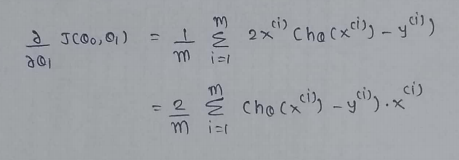 ∂/∂θ₁ J(θ₀,θ₁) = 1/m Σᵢ₌₁ᵐ 2x⁽ⁱ⁾ (hθ(x⁽ⁱ⁾) - y⁽ⁱ⁾)
= 2/m Σᵢ₌₁ᵐ (hθ(x⁽ⁱ⁾) - y⁽ⁱ⁾).x⁽ⁱ⁾